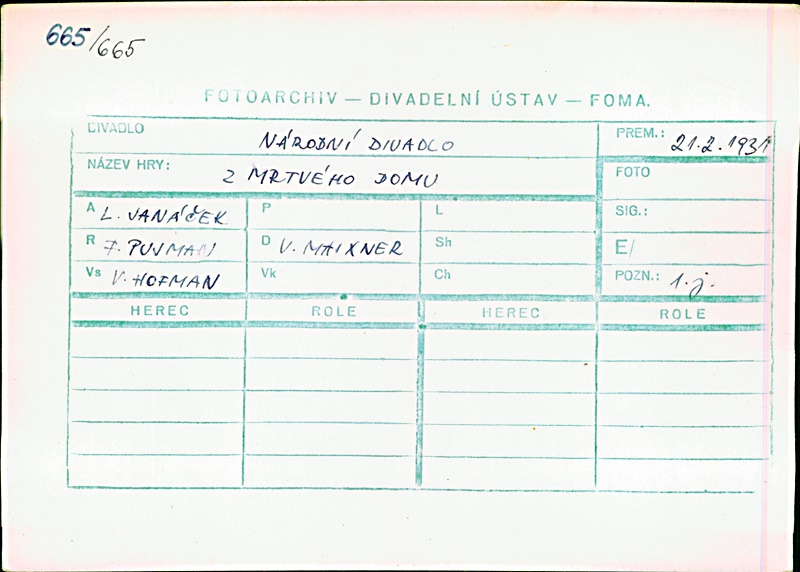 665/665
FOTOARCHIV — DIVADELNÍ ÚSTAV — FOMA.
DIVADLO NÁRODNÍ DIVADLO PREM.: 21.2.1931
NÁZEV HRY: Z MRTVÉHO DOMU FOTO
A L. JANÁČEK P L SIG.:
R F. PUJMAN D V. MAIXNER Sh E/
Vs V. HOFMAN Vk Ch POZN.: 1. j.
HEREC ROLE HEREC ROLE